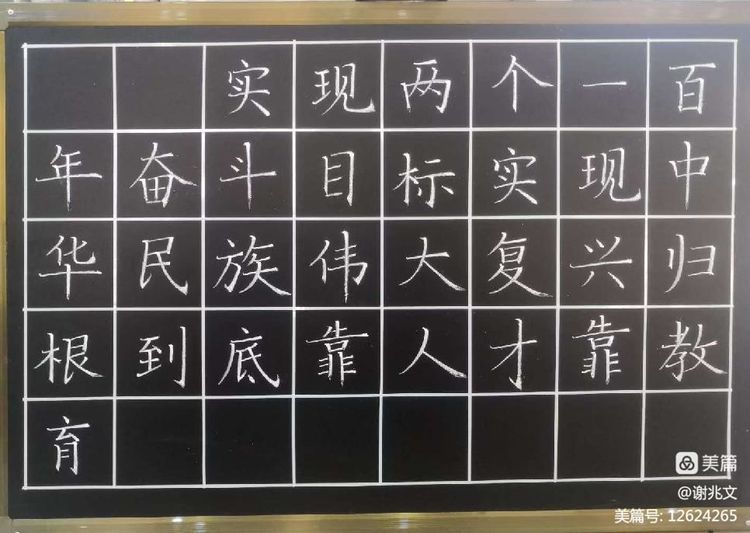 实现两个一百
年奋斗目标实现中
华民族伟大复兴归
根到底靠人才靠教
育
美篇
@谢兆文
美篇号: 12624265